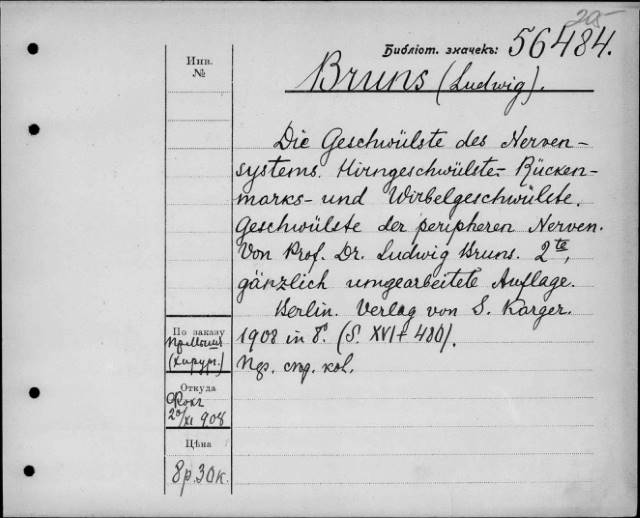 205
Библіот. значекъ: 56484.
Bruns (Ludwig).
Инв.
№
Die Geschwülste des Nerven-
systems. Hirngeschwülste- Rücken-
marks- und Wirbelgeschwülste.
Geschwülste der peripheren Nerven.
Von Prof. Dr. Ludwig Bruns. 2te,
gänzlich umgearbeitete Auflage.
Berlin. Verlag von S. Karger.
1908 in 8º. (S. XVI + 480).
По заказу
(хирург.)
Откуда
20/XI 908
Цѣна
8р.30к.